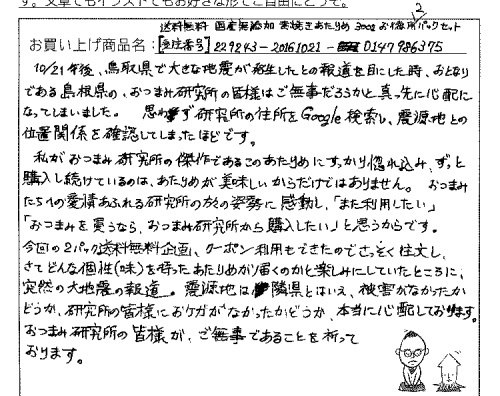 す。文章でもイラストでもお好きな形でご自由にどうぞ。
2
送料無料 国産無添加 素焼きあたりめ 300g お徳用パックセット
お買い上げ商品名:[受注番号] 229243-20161021-0147986375
10/21午後、鳥取県で大きな地震が発生したとの報道を目にした時、おとなり
である島根県の、おつまみ研究所の皆様はご無事だろうかと真っ先に心配に
なってしまいました。 思わず研究所の住所をGoogle検索し、震源地との
位置関係を確認してしまったほどです。
私がおつまみ研究所の傑作であるこのあたりめにすっかり惚れ込み、ずっと
購入し続けているのは、あたりめが美味しいからだけではありません。 おつまみ
たちへの愛情あふれる研究所の方の姿勢に感動し、「また利用したい」
「おつまみを買うなら、おつまみ研究所から購入したい」と思うからです。
今回の2パック送料無料企画、クーポン利用もできたのでさっそく注文し、
さてどんな個性(味)を持ったあたりめが届くのかと楽しみにしていたところに、
突然の大地震の報道。 震源地は隣県とはいえ、被害がなかったか
どうか、研究所の皆様におケガがなかったかどうか、本当に心配しております。
おつまみ研究所の皆様が、ご無事であることを祈って
おります。